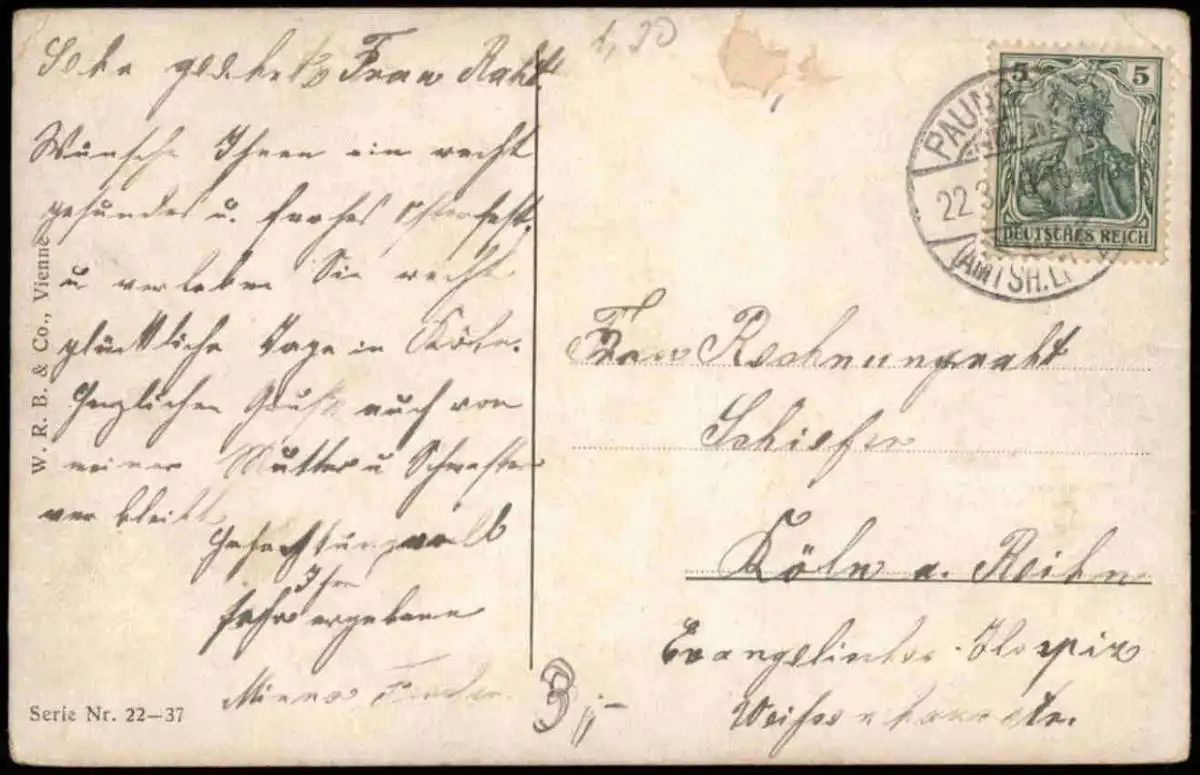 Sehr geehrte Frau Raht.
Wünsche Ihnen ein recht
gesundes u. frohes Osterfest,
u verleben Sie recht
glückliche Tage in Köln.
Herzlichen Gruß auch von
meiner Mutter u Schwester
verbleibt
Hochachtungsvoll
Ihre
sehr ergebene
Minna
W. R. B. & Co., Vienne
Serie Nr. 22—37
1,30
3,-
5 5
DEUTSCHES REICH
PAUNS
22 3
(AMTSH.L.
Frau Rechnungsraht
Schiefer
Köln a. Reihn
Evangelisches Hospiz
str.